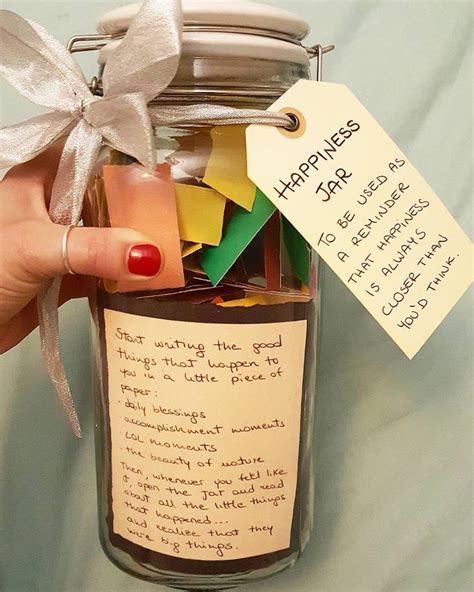 HAPPINESS
JAR
TO BE USED AS
A REMINDER
THAT HAPPINESS
IS ALWAYS
CLOSER THAN
YOU'D THINK.
Start writing the good
things that happen to
you in a little piece of
paper:
• daily blessings
accomplishment moments
LOL moments
the beauty of nature
Then, whenever you feel like
it, open the Jar and read
about all the little things
that happened...
and realize that they
were big things.